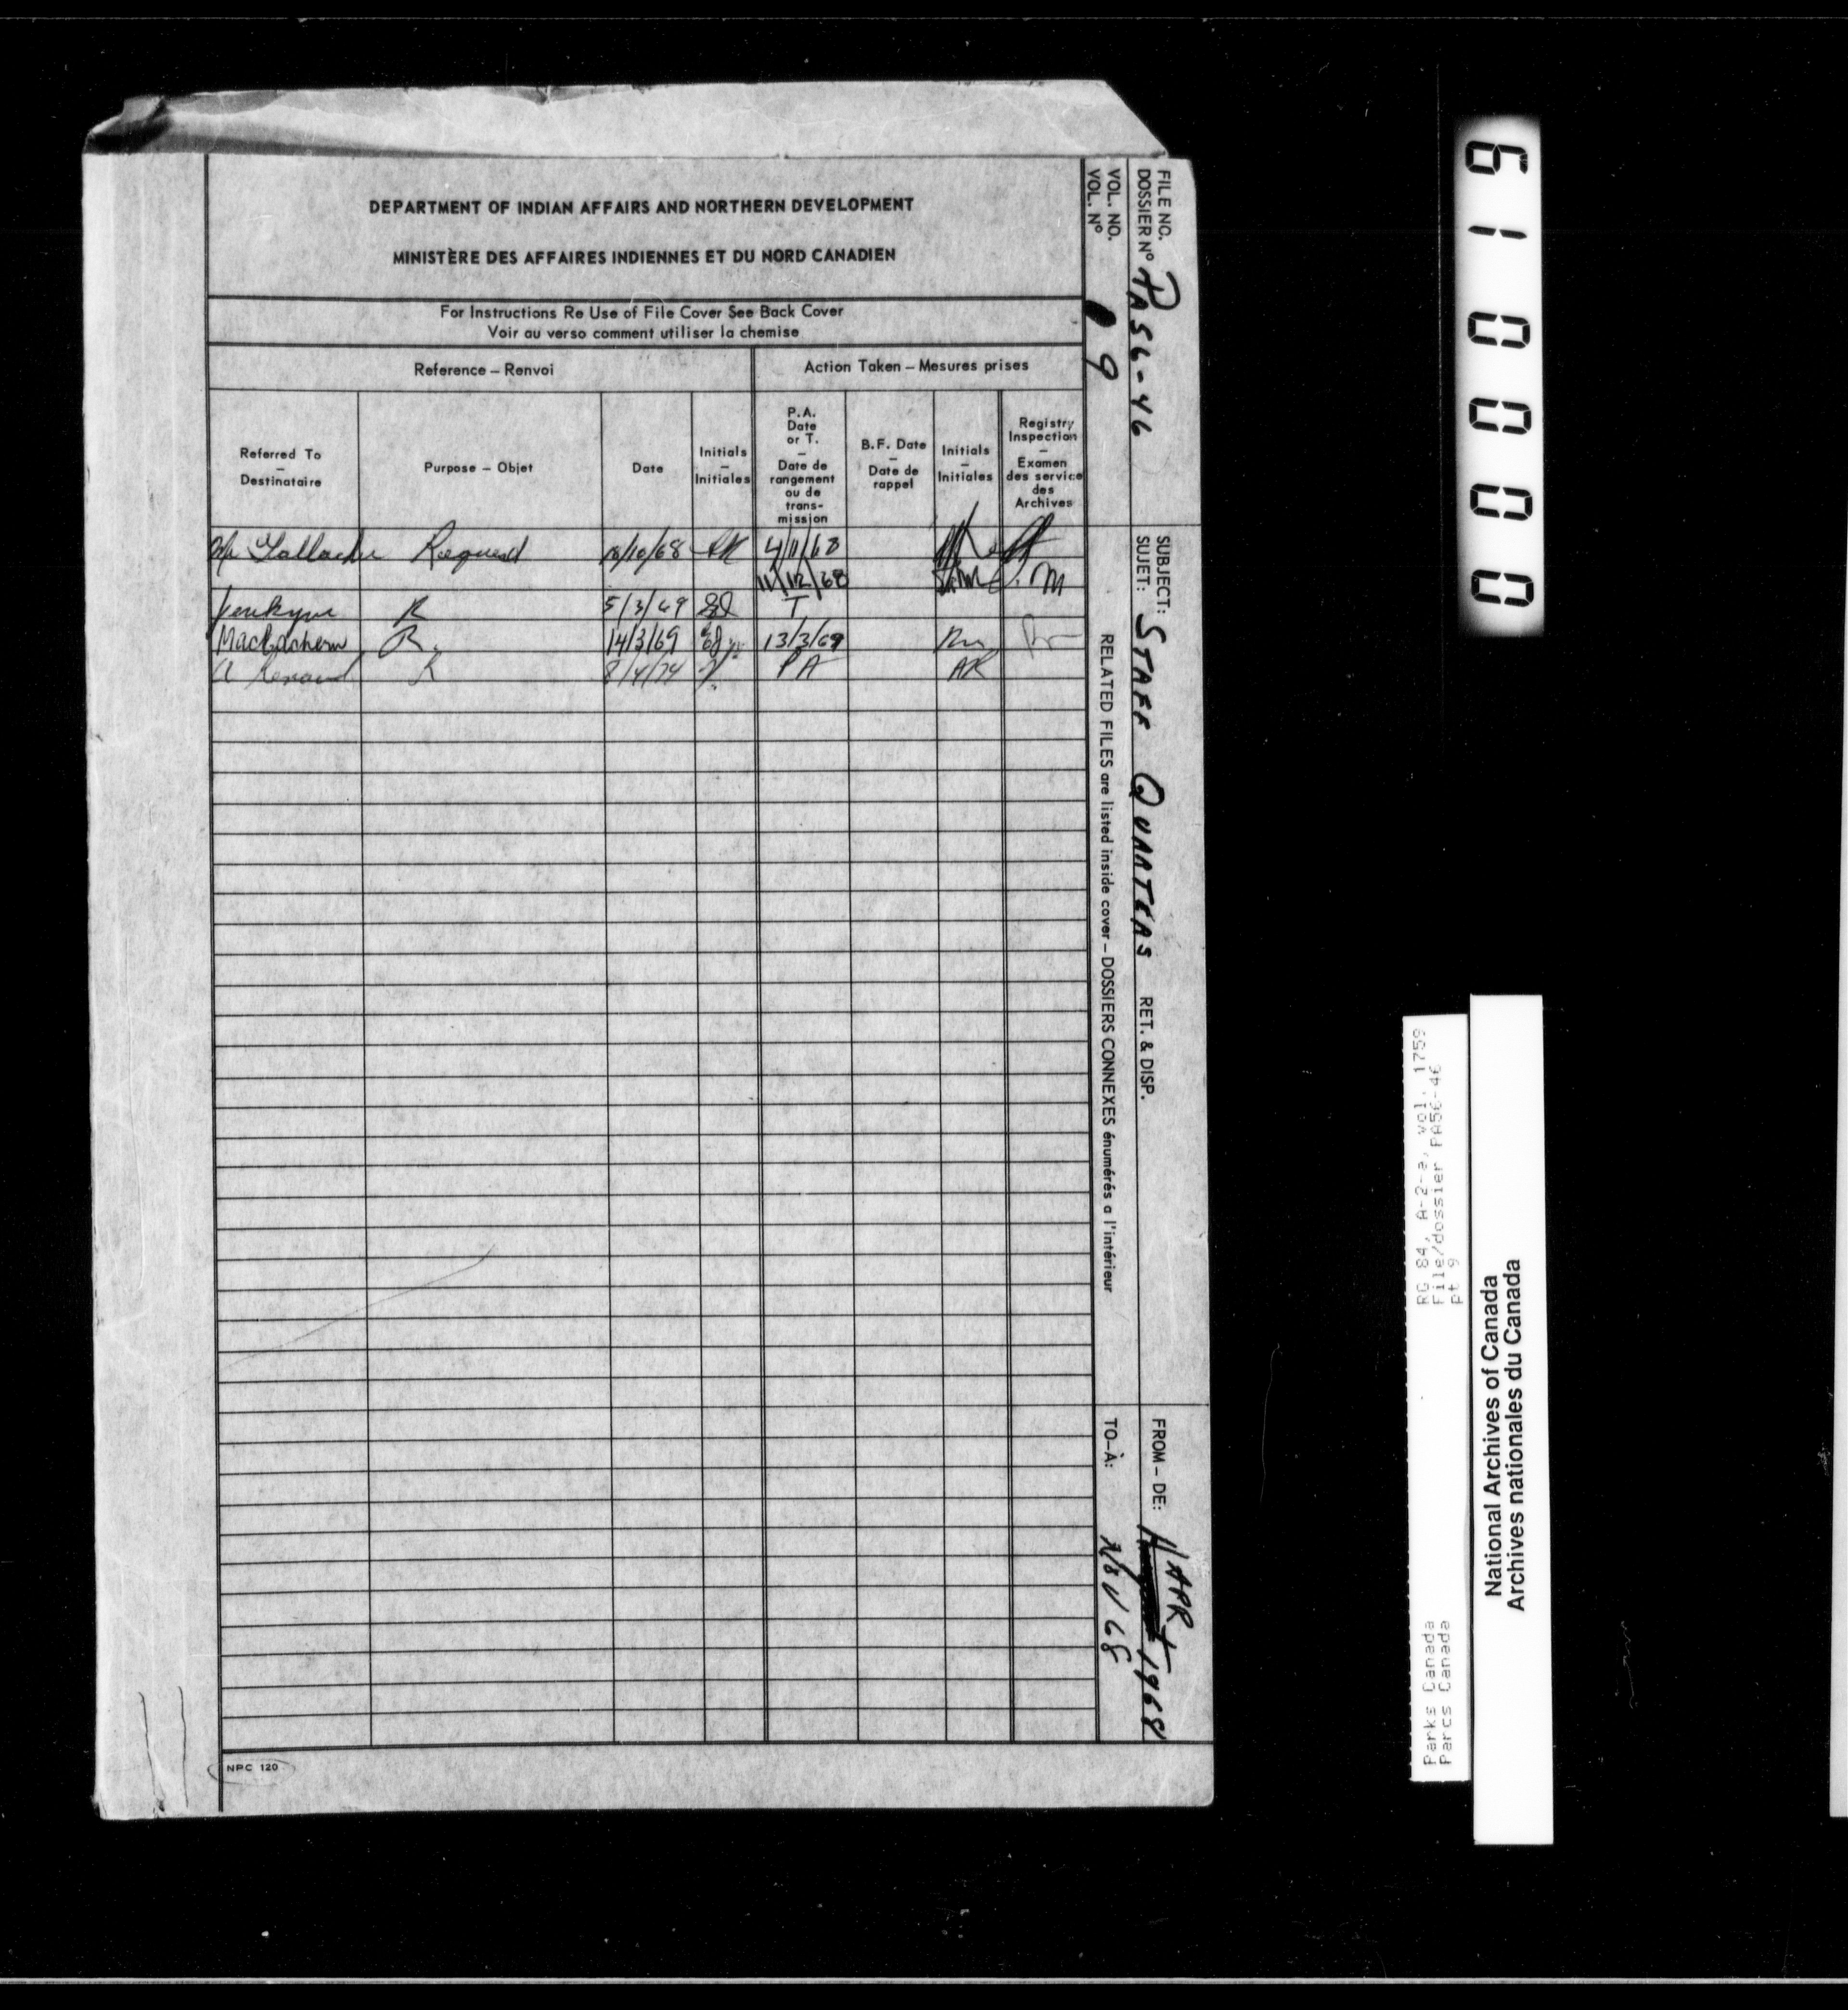 DEPARTMENT OF INDIAN AFFAIRS AND NORTHERN DEVELOPMENT
MINISTÈRE DES AFFAIRES INDIENNES ET DU NORD CANADIEN
For Instructions Re Use of File Cover See Back Cover
Voir au verso comment utiliser la chemise
Reference – Renvoi
Action Taken – Mesures prises
Referred To – Destinataire
Purpose – Objet
Date
Initials – Initiales
P.A. Date or T. – Date de rangement ou de trans-mission
B.F. Date – Date de rappel
Initials – Initiales
Registry Inspection – Examen des service des Archives
Request /10/68 4/11/68
11/12/68
R 5/3/69 T
MacEachern R. 14/3/69 13/3/69
R 8/4/74 PA AR
NPC 120
FILE NO.
DOSSIER Nº PA56-46
VOL. NO.
VOL. Nº 9
SUBJECT:
SUJET: STAFF QUARTERS
RET. & DISP.
RELATED FILES are listed inside cover – DOSSIERS CONNEXES énumérés a l'intérieur
FROM – DE: 1 APR 1968
TO–À: NOV 68
00019
RG 84, A-2-a, vol. 1759
File/dossier PA56-46
pt 9
Parks Canada
Parcs Canada
National Archives of Canada
Archives nationales du Canada